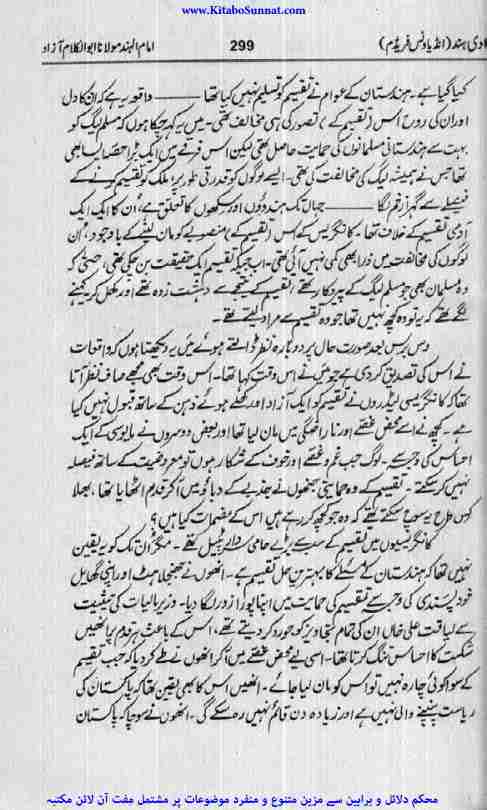 www.KitaboSunnat.com
ادیٔ ہند (انڈیا ونس فریڈم) 299 امام الہند مولانا ابوالکلام آزاد
کیا گیا ہے۔ ہندستان کے عوام نے تقسیم کو تسلیم نہیں کیا تھا ——— واقعہ یہ ہے کہ ان کا دل
اور ان کی روح اُس (تقسیم کے) تصور کی ہی مخالف تھی۔ میں یہ کہہ چکا ہوں کہ مسلم لیگ کو
بہت سے ہندستانی مسلمانوں کی حمایت حاصل تھی لیکن اس فرقے میں ایک بڑا حصہ ایسا بھی
تھا جس نے ہمیشہ لیگ کی مخالفت کی تھی۔ ایسے لوگوں کو قدرتی طور پر ملک کو تقسیم کرنے کے
فیصلے سے گہرا زخم لگا ——— جہاں تک ہندوؤں اور سکھوں کا تعلق ہے، ان کا ایک ایک
آدمی تقسیم کے خلاف تھا۔ کانگریس کے اس (تقسیم کے) منصوبے کو مان لینے کے باوجود، ان
لوگوں کی مخالفت میں ذرا بھی کمی نہیں آئی تھی۔ اب جبکہ تقسیم ایک حقیقت بن چکی تھی، حتیٰ کہ
وہ مسلمان بھی جو مسلم لیگ کے پیروکار تھے، تقسیم کے نتیجے سے دہشت زدہ تھے اور کھل کر یہ کہنے
لگے تھے کہ یہ تو وہ کچھ نہیں تھا جو وہ تقسیم سے مراد لیتے تھے۔
دس برس بعد صورت حال پر دوبارہ نظر ڈالتے ہوئے میں یہ دیکھتا ہوں کہ واقعات
نے اس کی تصدیق کر دی ہے جو میں نے اس وقت کہا تھا۔ اس وقت بھی مجھے صاف نظر آتا
تھا کہ کانگریسی لیڈروں نے تقسیم کو ایک آزاد اور کھلے ہوئے ذہن کے ساتھ قبول نہیں کیا
ہے۔ کچھ نے اسے محض غصّے اور ناراضگی میں مان لیا تھا اور بعض دوسروں نے مایوسی کے ایک
احساس کی وجہ سے۔ لوگ جب غم و غصّے اور خوف کے شکار ہوں تو معروضیت کے ساتھ فیصلہ
نہیں کر سکتے۔ تقسیم کے وہ حمایتی جنھوں نے جذبے کے دباؤ میں آکر قدم اٹھایا تھا، بھلا
کس طرح یہ سوچ سکتے تھے کہ وہ جو کچھ کر رہے ہیں اس کے مضمرات کیا ہیں؟
کانگریسیوں میں تقسیم کے سب سے بڑے حامی سردار پٹیل تھے۔ مگر ان تک کو یہ یقین
نہیں تھا کہ ہندستان کے مسئلے کا بہترین حل تقسیم ہے۔ انھوں نے جھنجھلاہٹ اور اپنی گھایل
خود پسندی کی وجہ سے تقسیم کی حمایت میں اپنا پورا زور لگا دیا۔ وزیر مالیات کی حیثیت
سے لیاقت علی خاں ان کی تمام تجاویز کو جو رد کر دیتے تھے، اس کے باعث ہر قدم پر انھیں
شکست کا احساس تنگ کرتا تھا۔ اسی لیے محض غصّے میں آکر انھوں نے طے کر دیا کہ جب تقسیم
کے سوا کوئی چارہ نہیں تو اس کو مان لیا جائے۔ انھیں اس کا بھی یقین تھا کہ پاکستان کی
ریاست پنپنے والی نہیں ہے اور زیادہ دن قائم نہیں رہ سکے گی۔ انھوں نے سوچا کہ پاکستان
محکم دلائل و براہین سے مزین متنوع و منفرد موضوعات پر مشتمل مفت آن لائن مکتبہ